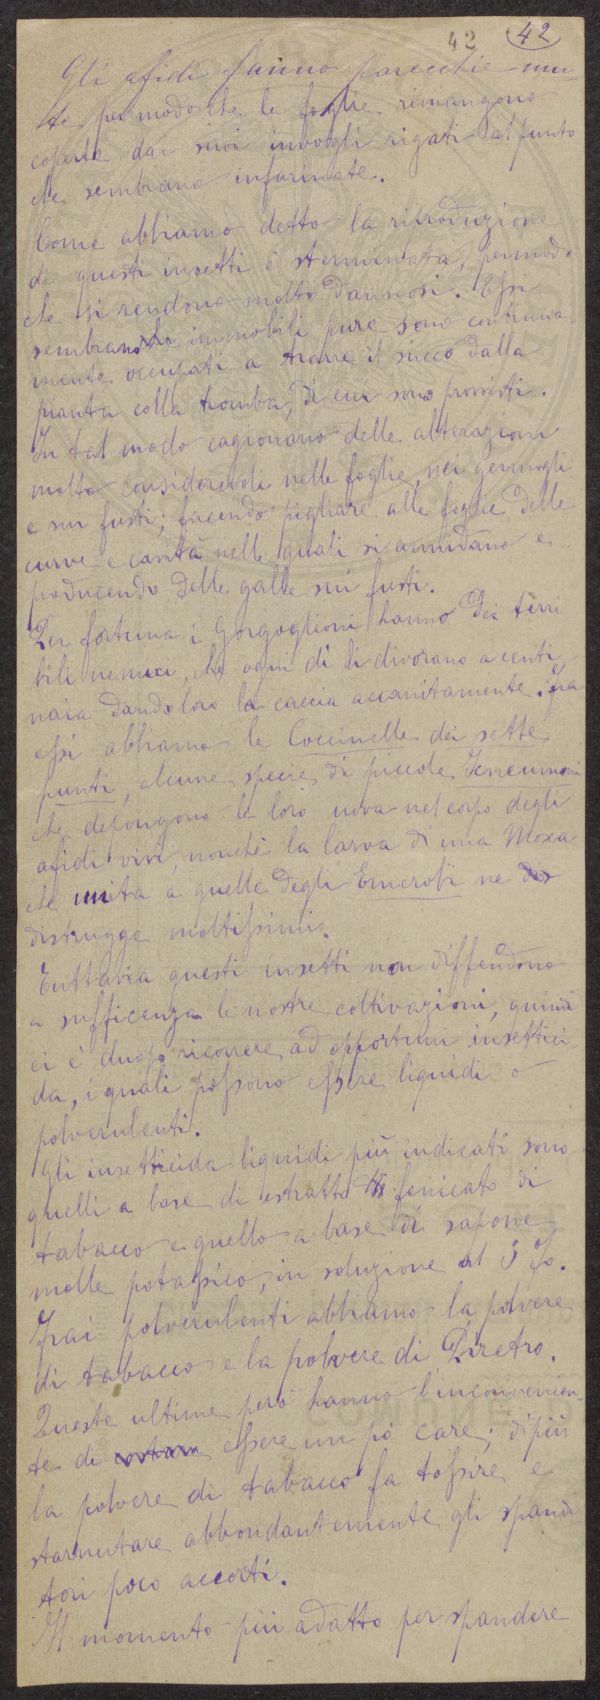 42 42
Gli afidi fanno parecchie mu-
te, per modo che le foglie rimangono
coperte dai suoi invogli rigati al punto
che sembrano infarinate.
Come abbiamo detto la riproduzione
di questi insetti è sterminata, permodo
che si rendono molto dannosi. Essi
sembrano immobili pure sono continua
mente occupati a trarre il succo dalla
pianta colla tromba, di cui sono provvisti.
In tal modo cagionano delle alterazioni
molto considerevoli nelle foglie, nei germogli
e sui fusti; facendo pigliare alle foglie delle
curve e cavità nelle quali si annidano e
producendo delle galle sui fusti.
Per fortuna i Gorgoglioni hanno dei terri
bili nemici, che ogni dì li divorano a centi
naia dando loro la caccia accanitamente. Fra
essi abbiamo le Coccinelle dei sette
punti, alcune specie di piccole Icneumoni
che depongono le loro uova nel corpo degli
afidi vivi, nonchè la larva di una Mosca
che unita a quelle degli Emerobi ne dis
distrugge moltissimi.
Tuttavia questi insetti non diffendono
a sufficenza le nostre coltivazioni, quindi
ci è duopo ricorrere ad opportuni insettici
da, i quali possono essere liquidi o
polverulenti.
Gli insetticida liquidi più indicati sono
quelli a base di estratto fenicato di
tabacco e quello a base di sapone
molle potassico, in soluzione al 3 %.
Frai polverulenti abbiamo la polvere
di tabacco e la polvere di Piretro.
Queste ultime però hanno l'inconvenien-
te di essere un pò care; dipiù
la polvere di tabacco fa tossire e
starnutare abbondantemente gli spandi
tori poco accorti.
Il momento più adatto per spandere